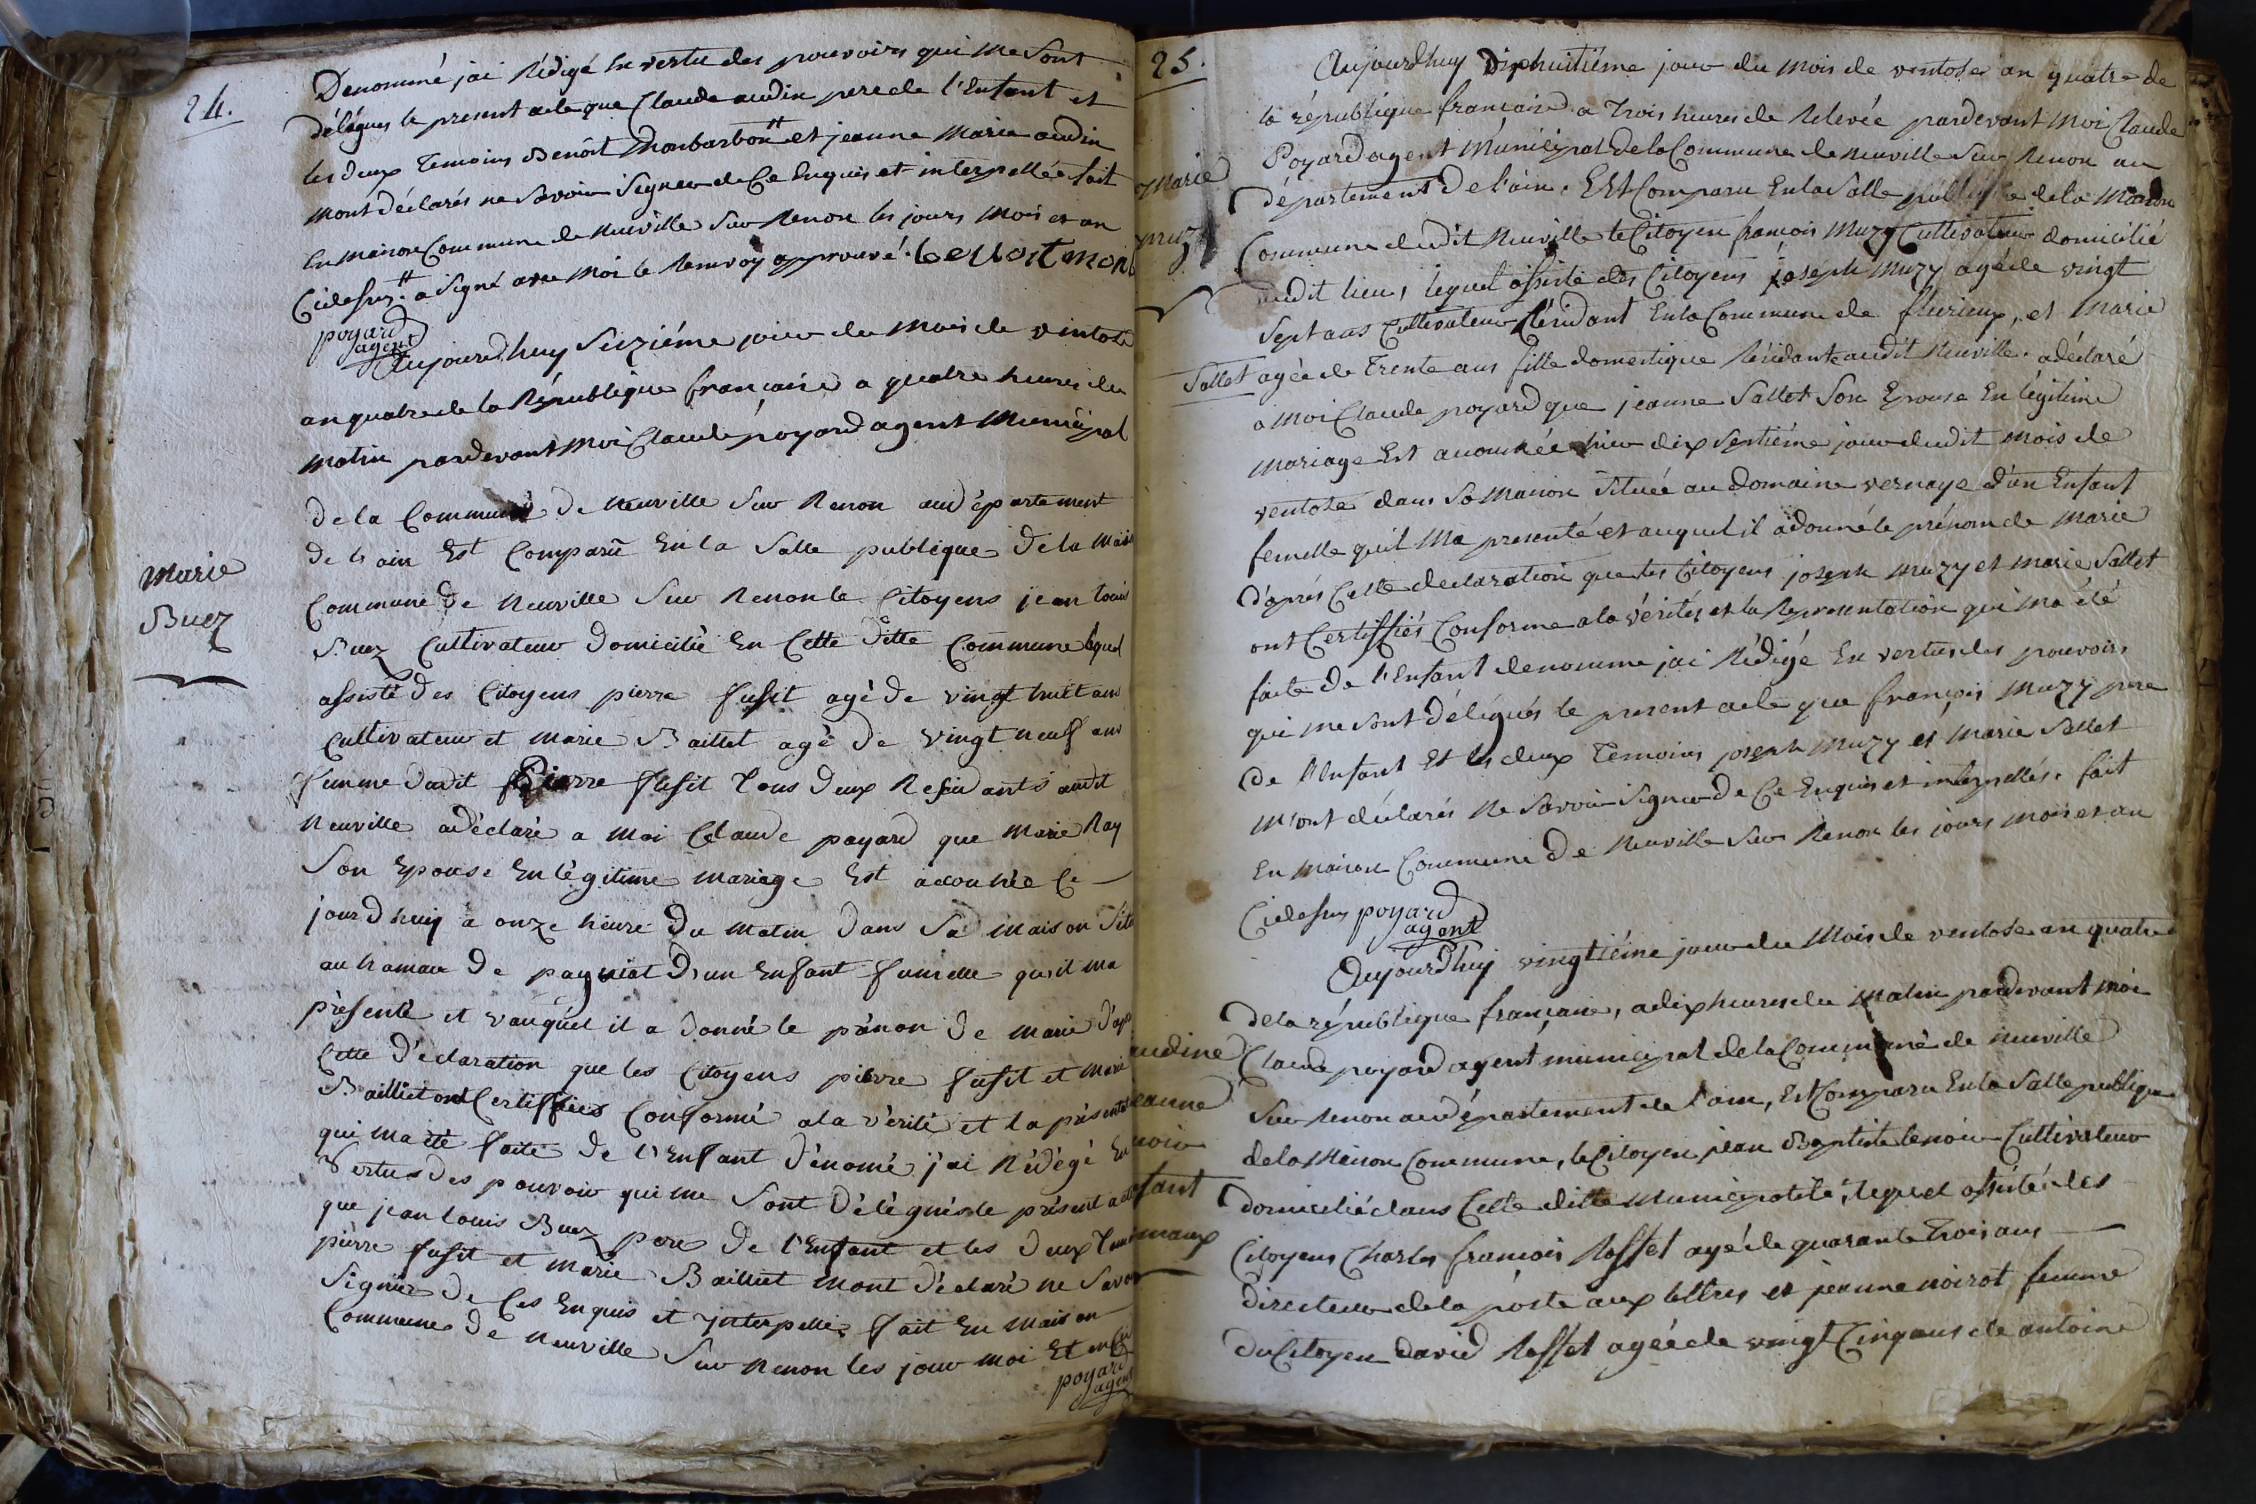 24.
Denommé jai Rédigé En vertu des pouvoirs qui me Sont
délégués le present acte que Claude audin pere de l'Enfant et
les deux Temoins Benoit Monbarbon # et jeanne Marie audin
mont déclarés ne Savoir Signer de Ce Enquis et interpellés fait
En maison Commune de Neuville Sur Renon les jours Mois et an
Cidessus. # a Signé avec Moi le Renvoy approuvé. benoit mon
poyard
agent
Aujourdhuy Seiziéme jour du Mois de vintose
an quatre de la République française a quatre heures du
Matin pardevant Moi Claude poyard agent Municipal
Marie
Buez
de la Commune de Neuville Sur Renon au département
de l'ain Est Comparu En la Salle publique de la Mais
Commune de Neuville Sur Renon le Citoyens jean louis
Buez Cultivateur domicilié En Cette ditte Commune lequel
assisté des Citoyens pierre fusit agé de vingt huit ans
Cultivateur et Marie Baillet agé de vingt neuf ans
femme dudit Pierre fusit Tous deux Residants audit
Neuville a déclaré a Moi Claude poyard que Marie Ray
Son Epouse En légitime mariage Est acouhée Ce
jourdhuy a onze heure du Matin dans Sa maison Sit
au hamau de pagniat d'un Enfant fumelle quil ma
présenté et vauquel il a donné le prénon de marie d'ap
Cette déclaration que les Citoyens pierre fusit et Marie
Bailliet ont Certiffiés Conformé a la vérité et la présent
qui ma été faite de l'Enfant dénomé j'ai Rédégé En
Vertus des pouvoir qui me Sont délégués le présent a
que jean louis Buez pere de l'Enfant et les deux Tem
pierre fusit et Marie Bailliet Mont déclaré ne Savoir
Signer de Ces Enquis et interpellés fait En Maison
Commune de Neuville Sur Renon les jour moi Et an Ci
poyard
agent
25.
Marie
muzy
Sallet
Aujourdhuy dixhuitiéme jour du Mois de ventose an quatre de
la république française a Trois heures de Relevée pardevant Moi Claude
Poyard agent Municipal de la Commune de Neuville Sur Renon au
département de l'ain. Est Comparu En la Salle publique de la Maison
Commune dudit Neuville le Citoyen françois Muzy Cultivateur domicilié
audit lieu, lequel assisté des Citoyens joséph Muzy agé de vingt
Sept ans Cultivateur Résidant En la Commune de fleurieux, et Marie
agée de Trente ans fille domestique Résidante audit Neuville. a déclaré
a Moi Claude poyard que jeanne Sallet Son Epouse En légitime
Mariage Est acouchée hier dix Septiéme jour dudit Mois de
ventose dans Sa Maison Située au domaine vernaye d'un Enfant
femelle quil Ma presenté et auquel il a donné le prénom de Marie
d'après Cette declaration que les Citoyens joseph Muzy et Marie Sallet
ont Certiffiés Conforme a la vérité, et la Representation qui Ma été
faite de l'Enfant denommé jai Rédigé En vertus des pouvoirs
qui me Sont délégués le present acte que françois Muzy pere
de l'Enfant Et les deux Temoins joseph Muzy et Marie Sallet
M'ont déclarés Ne Savoir Signer de Ce Enquis et interpellés. fait
En Maison Commune de Neuville Sur Renon les jours Mois et an
Cidessus poyard
agent
Aujourdhuy vingtiéme jour du Mois de ventose an quatre
de la république française, a dix heures du Matin pardevant Moi
Claude poyard agent municipal de la Commune de Neuville
Sur Renon au département de l'ain, Est Comparu En la Salle publique
de la Maison Commune, le Citoyen jean Baptiste lenoir Cultivateur
domicilié dans Cette ditte Municipalité, lequel assisté des
Citoyens Charles françois Rosset agé de quarante Trois ans
directeur de la poste aux lettres et jeanne noirot femme
du Citoyen david Rosset agée de vingt Cinq ans de antoine